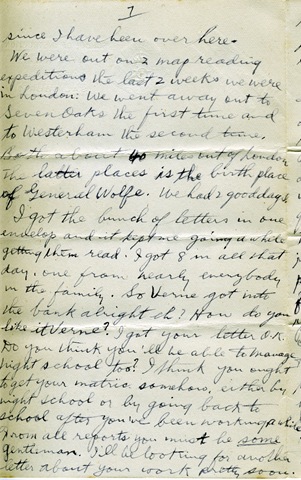 7
since I have been over here.
We were out on 2 map reading
expeditions the last 2 weeks we were
in London. We went away out to
Seven Oaks the first time and
to Westerham the second time.
Both about 40 miles out of London
The latter places is the birth place
of General Wolfe. We had 2 good days.
I got the bunch of letters in one
envelop and it kept me going a while
getting them read. I got 8 in all that
day. one from nearly everybody
in the family. So Verne got into
the bank alright eh? How do you
like it Verne? I got your letter O.K.
Do you think you'll be able to manage
night school too? I think you ought
to get your matric somehow, either by
night school or by going back to
school after you've been working a while
From all reports you must be some
gentleman. I'll be looking for another
letter about your work pretty soon.